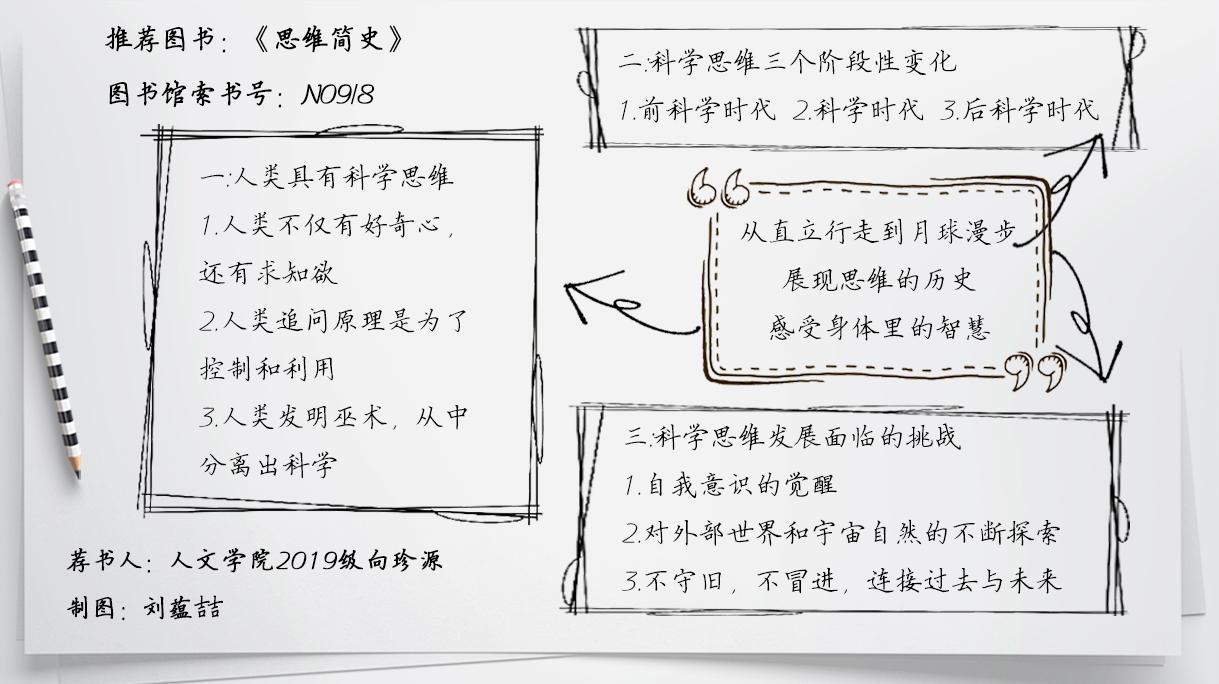 推荐图书：《思维简史》
图书馆索书号：N09/8
一:人类具有科学思维
1.人类不仅有好奇心，
还有求知欲
2.人类追问原理是为了
控制和利用
3.人类发明巫术，从中
分离出科学
二:科学思维三个阶段性变化
1.前科学时代 2.科学时代 3.后科学时代
从直立行走到月球漫步
展现思维的历史
感受身体里的智慧
三:科学思维发展面临的挑战
1.自我意识的觉醒
2.对外部世界和宇宙自然的不断探索
3.不守旧，不冒进，连接过去与未来
荐书人：人文学院2019级向珍源
制图：刘蕴喆